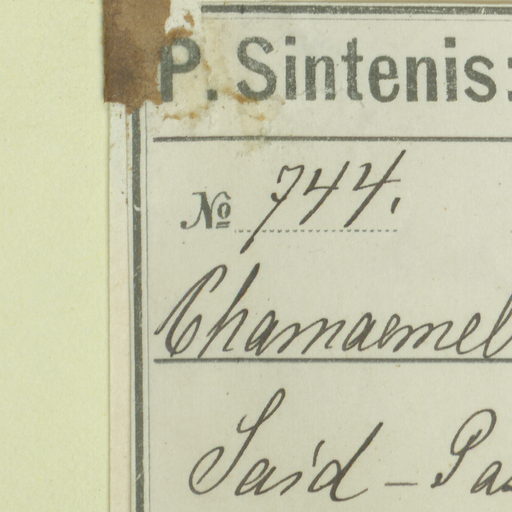 P. Sintenis:
№ 744.
Chamaemel
Said - Pas